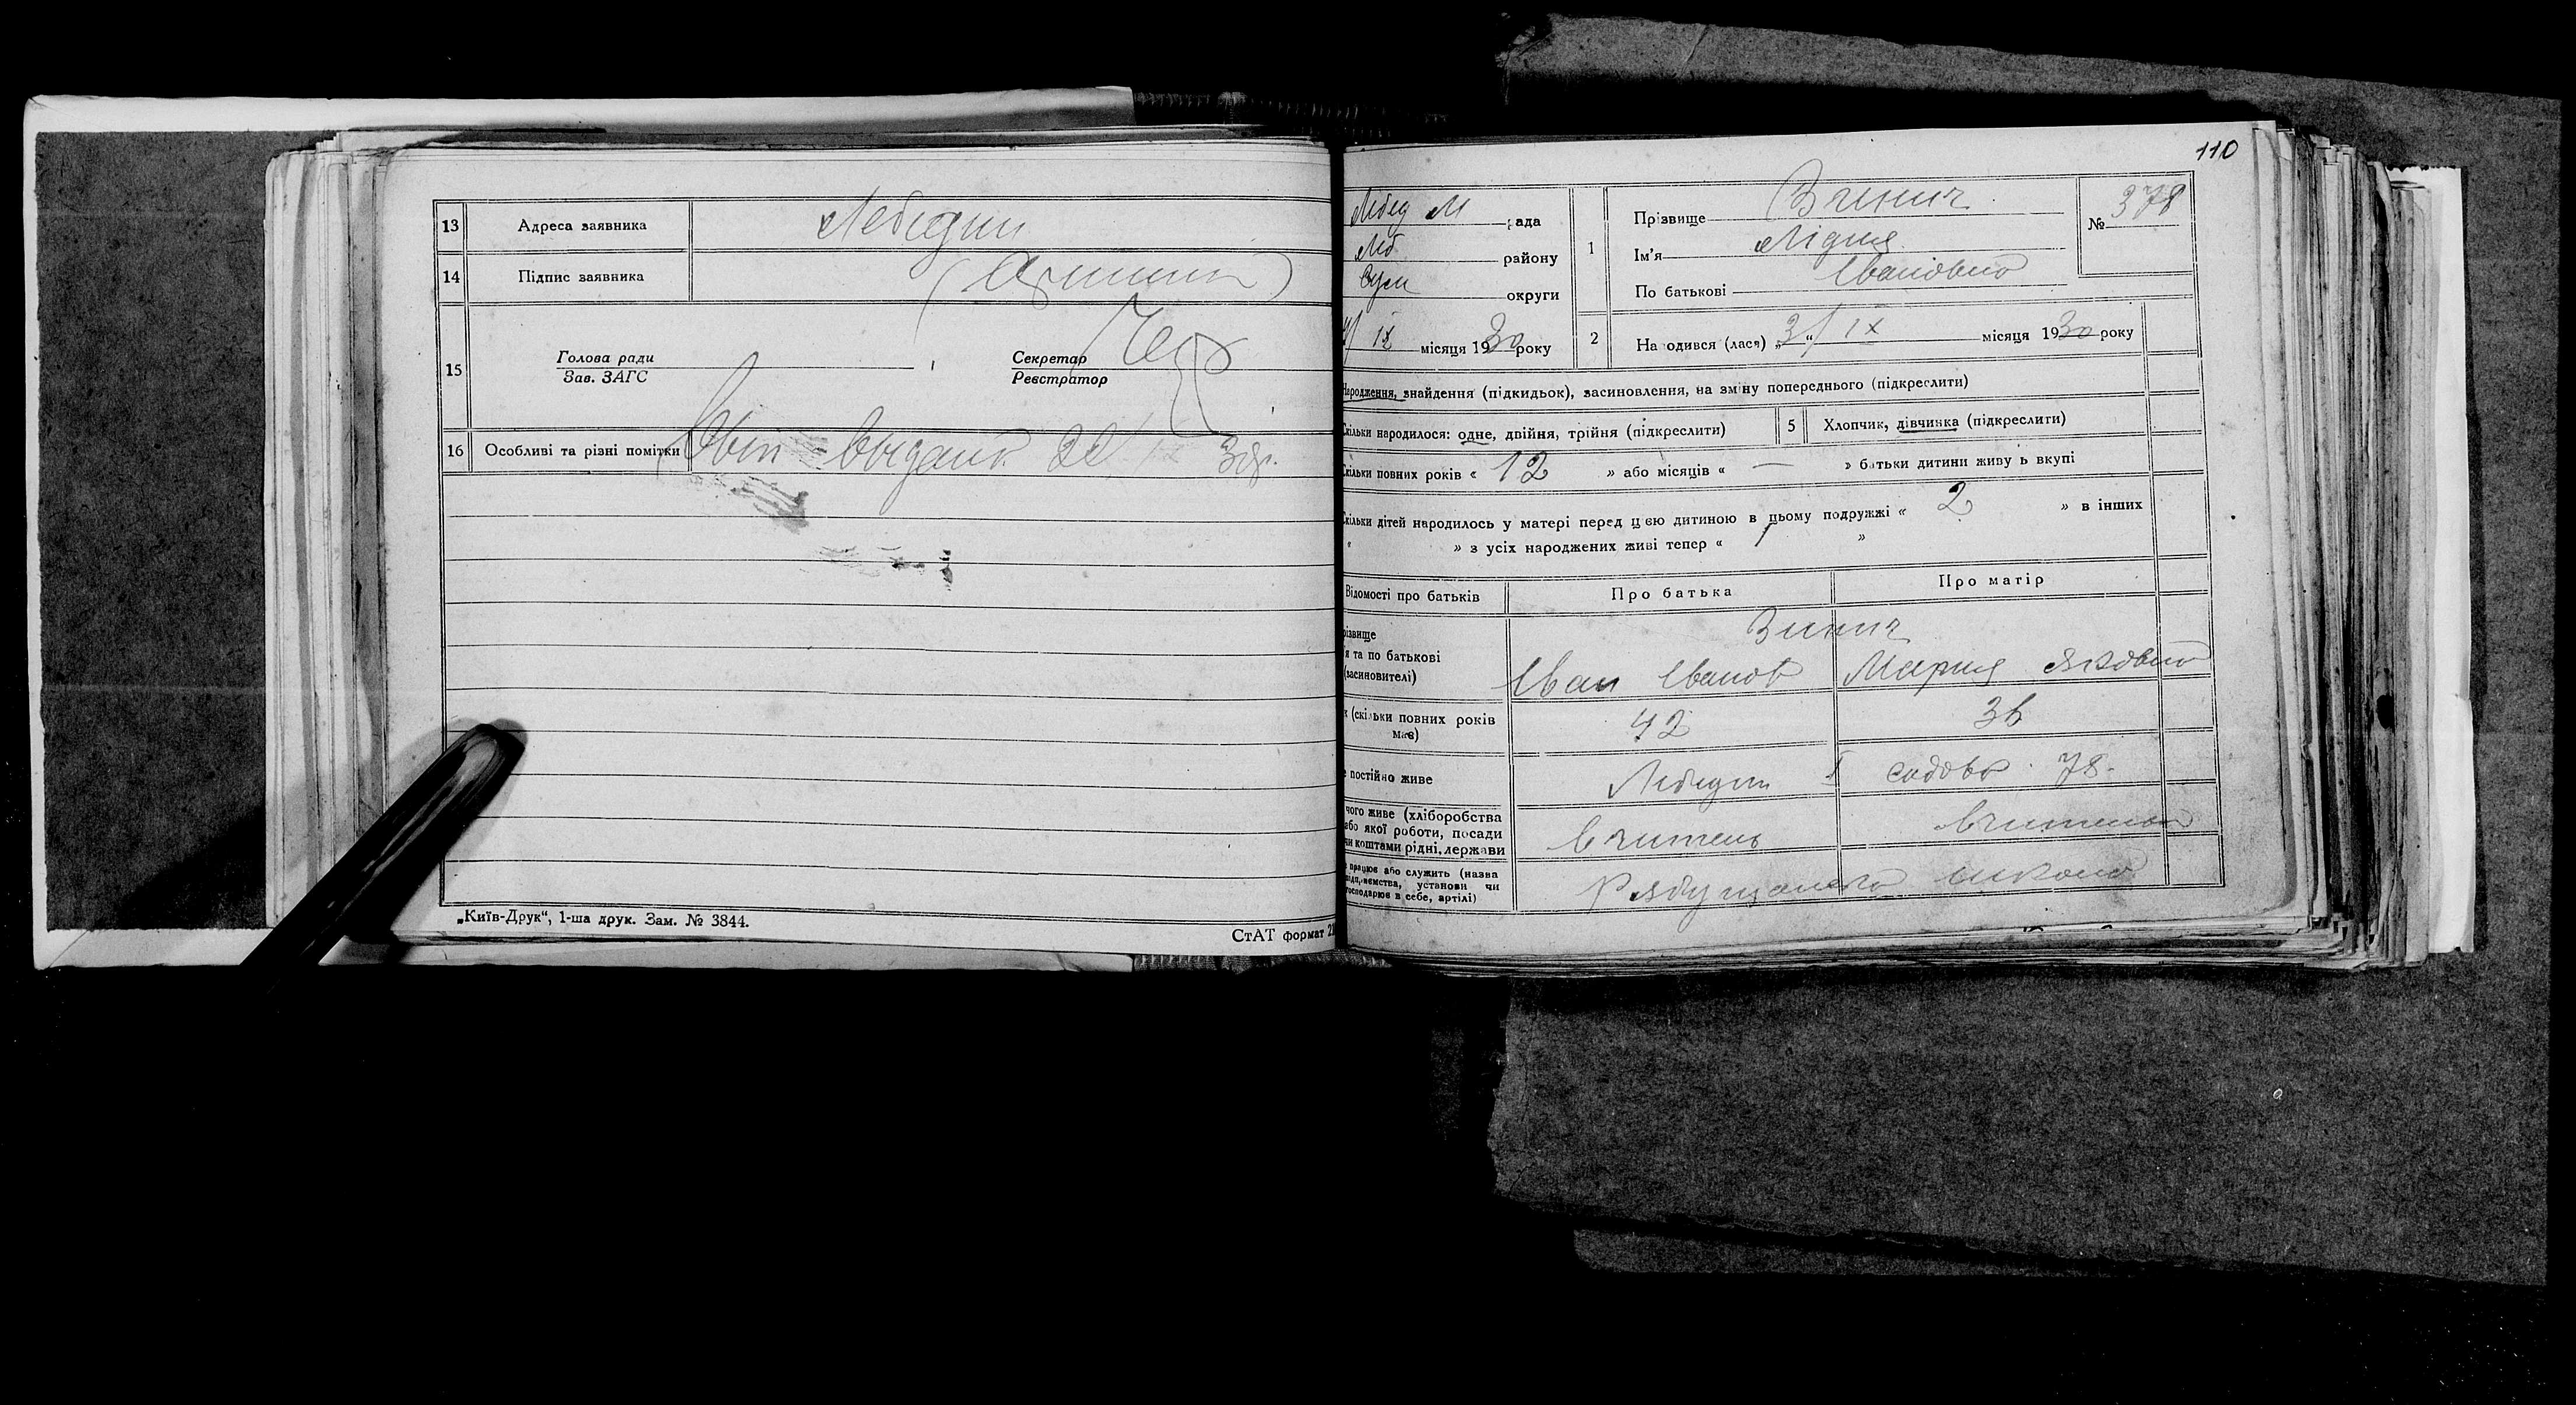 13 Адреса заявника Лебедин
14 Підпис заявника
15 Голова ради
Зав. ЗАГС
Секретар
Реєстратор
16 Особливі та різні помітки
„Київ-Друк“, 1-ша друк. Зам. № 3844.
СтАТ формат
110
Лебед М рада
Леб району
Сум округи
IX місяця 1930 року
1 Прізвище Зинич
Ім'я Лідия
По батькові Івановно
№ 378
2 На одився (лася) „3“ IX місяця 1930 року
Народження, знайдення (підкидьок), засиновлення, на зміну попереднього (підкреслити)
Скільки народилося: одне, двійня, трійня (підкреслити)
5 Хлопчик, дівчинка (підкреслити)
Скільки повних років « 12 » або місяців « — » батьки дитини живу ь вкупі
Скільки дітей народилось у матері перед цією дитиною в цьому подружжі « 2 » в інших
« » з усіх народжених живі тепер « 1 »
Відомості про батьків Про батька Про матір
різвище
я та по батькові
(засиновителі)
Зинич
Іван Іванов Мария Яковно
к (скільки повних років має)
42 36
е постійно живе Лебедин садова 78.
чого живе (хліборобства
або якої роботи, посади
чи коштами рідні, держави
Вчитель Вчителька
е працює або служить (назва
підприємства, установи чи
господарює в себе, артілі)
Рябущанска школа